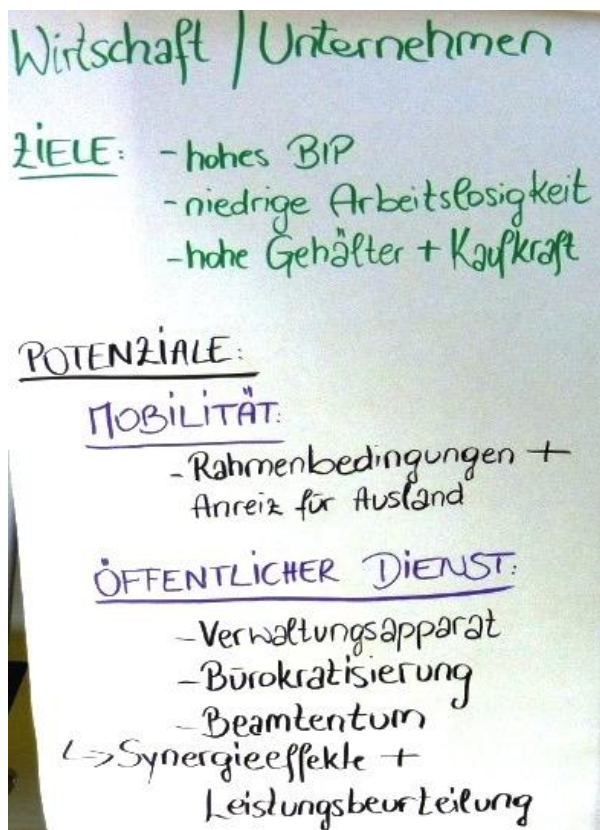 Wirtschaft / Unternehmen
ZIELE: - hohes BIP
- niedrige Arbeitslosigkeit
- hohe Gehälter + Kaufkraft
POTENZIALE:
MOBILITÄT:
- Rahmenbedingungen +
Anreiz für Ausland
ÖFFENTLICHER DIENST:
- Verwaltungsapparat
- Bürokratisierung
- Beamtentum
↳ Synergieeffekte +
Leistungsbeurteilung